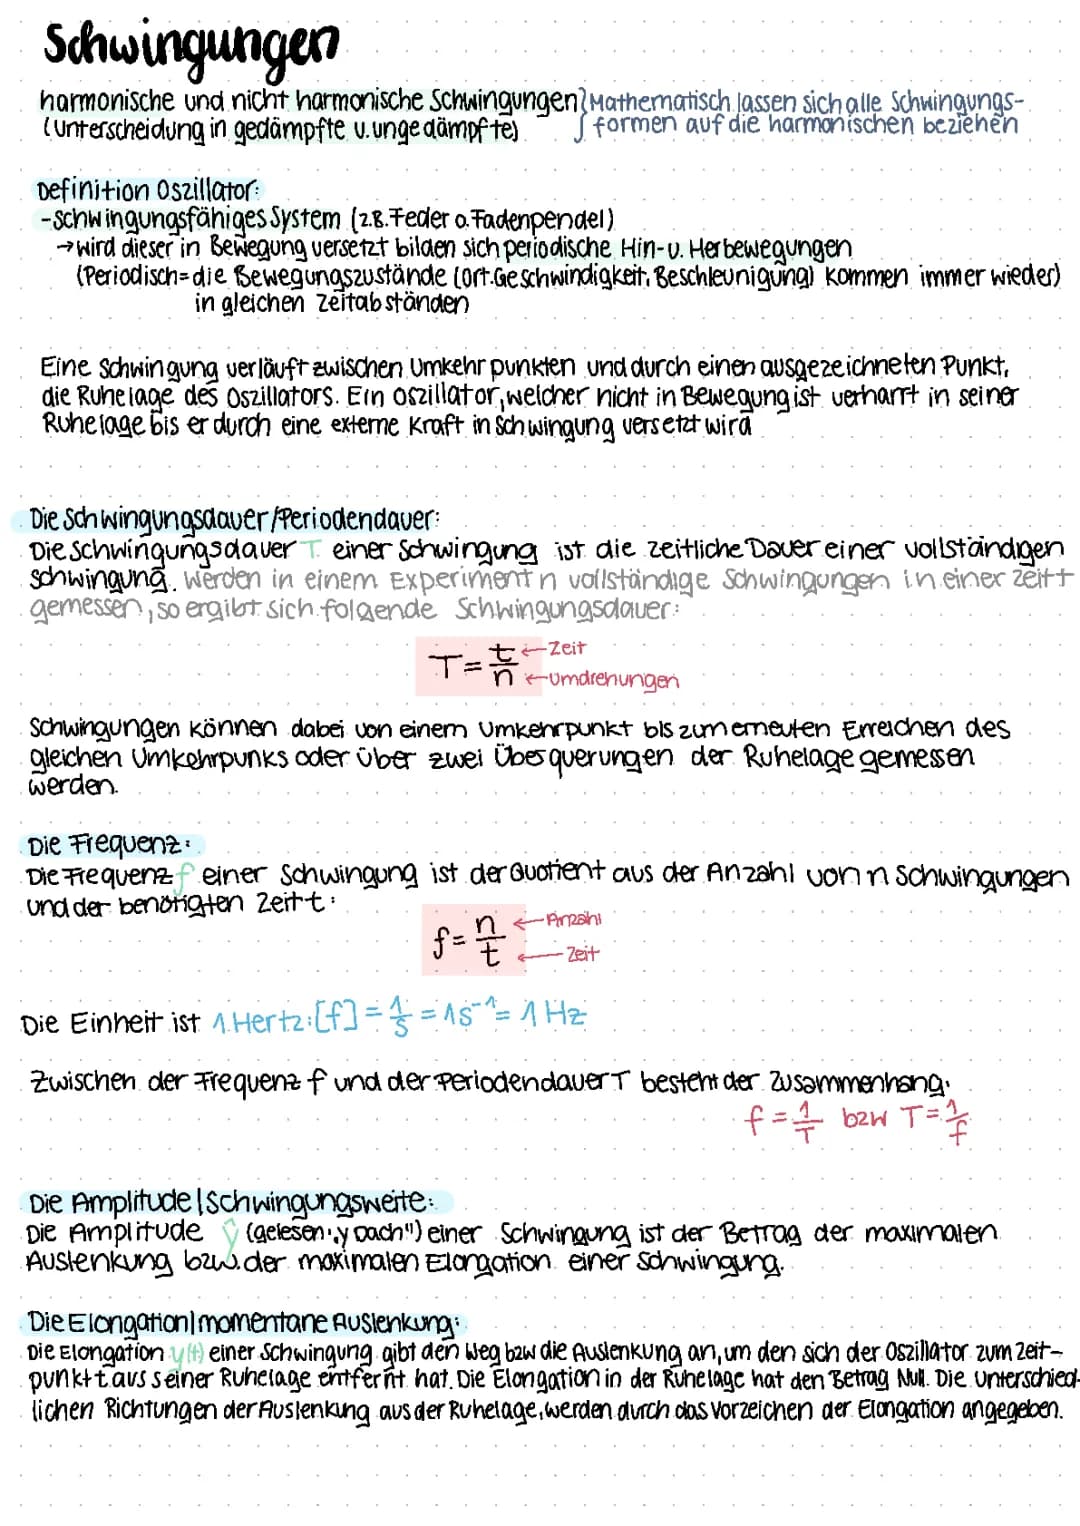 Schwingungen
harmonische und nicht harmonische Schwingungen } Mathematisch lassen sich alle Schwingungs-
(Unterscheidung in gedämpfte u. ungedämpfte) formen auf die harmonischen beziehen
Definition Oszillator:
-schwingungsfähiges System (z.B. Feder o. Fadenpendel)
→ wird dieser in Bewegung versetzt bilden sich periodische Hin- u. Herbewegungen
(Periodisch = die Bewegungszustände (Ort. Geschwindigkeit, Beschleunigung) kommen immer wieder)
in gleichen Zeitabständen
Eine Schwingung verläuft zwischen Umkehrpunkten und durch einen ausgezeichneten Punkt,
die Ruhelage des Oszillators. Ein oszillator, welcher nicht in Bewegung ist verharrt in seiner
Ruhelage bis er durch eine externe Kraft in Schwingung versetzt wird
Die Schwingungsdauer/Periodendauer:
Die Schwingungsdauer T einer Schwingung ist die zeitliche Dauer einer vollständigen
schwingung. Werden in einem Experiment n vollständige Schwingungen in einer Zeit t
gemessen, so ergibt sich folgende Schwingungsdauer:
T = t/n ← Zeit
← Umdrehungen
Schwingungen können dabei von einem Umkehrpunkt bis zum erneuten Erreichen des
gleichen Umkehrpunks oder über zwei Übesquerungen der Ruhelage gemessen
werden.
Die Frequenz:
Die Frequenz f einer Schwingung ist der Quotient aus der Anzahl von n Schwingungen
und der benötigten Zeit t:
f = n/t ← Anzahl
← Zeit
Die Einheit ist 1 Hertz: [f] = 1/s = 1s⁻¹ = 1 Hz
Zwischen der Frequenz f und der Periodendauer T besteht der Zusammenhang:
f = 1/T bzw T = 1/f
Die Amplitude | Schwingungsweite:
Die Amplitude ŷ (gelesen: „y Dach") einer Schwingung ist der Betrag der maximalen
Auslenkung bzw. der maximalen Elongation einer Schwingung.
Die Elongation | momentane Auslenkung:
Die Elongation y(t) einer Schwingung gibt den Weg bzw die Auslenkung an, um den sich der Oszillator zum Zeit-
punkt t aus seiner Ruhelage entfernt hat. Die Elongation in der Ruhelage hat den Betrag Null. Die Unterschied-
lichen Richtungen der Auslenkung aus der Ruhelage, werden durch das Vorzeichen der Elongation angegeben.